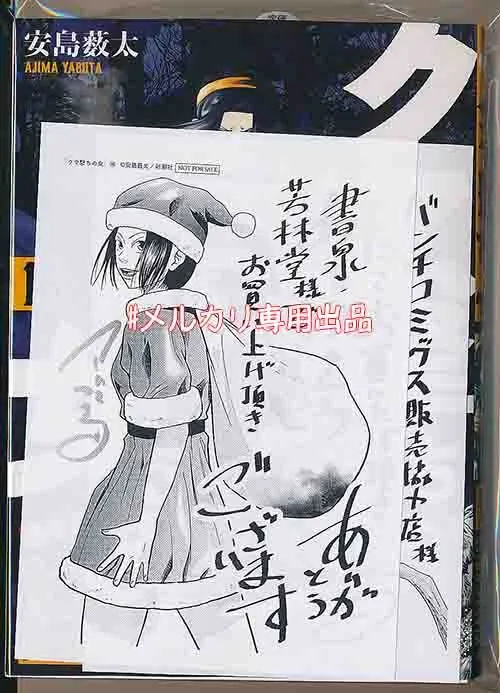 安島薮太
AJIMA YABUTA
ク
「クマ撃ちの女」⑭ ©安島薮太／新潮社 NOT FOR SALE
バンチコミックス販売協力店様
書泉・
芳林堂様
お買い上げ頂き
ありがとう
ございます
#メルカリ専用出品